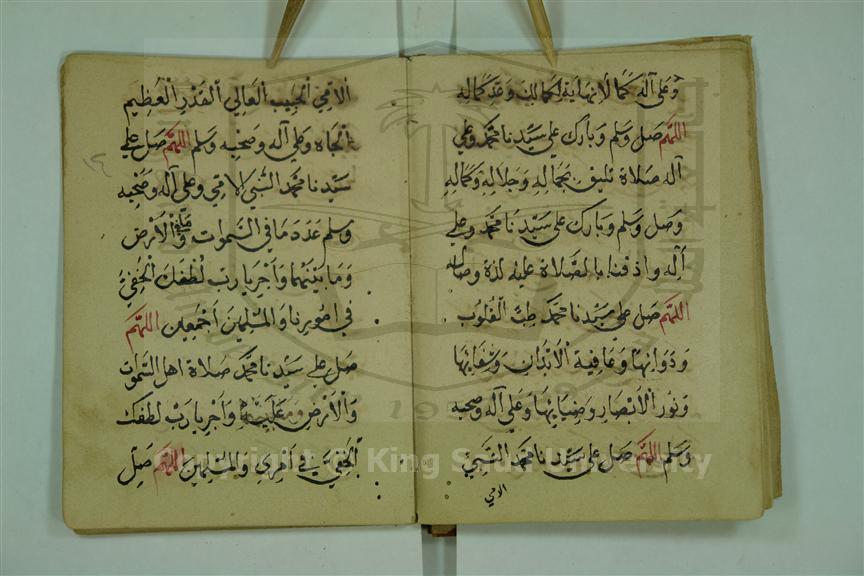 وعلى آله كما لا نهاية لكمالك وعد كماله
اللهم صل وسلم وبارك على سيدنا محمد وعلى
آله صلاة تليق بجماله وجلاله وكماله
وصل وسلم وبارك على سيدنا محمد وعلى
آله واذقنا بالصلاة عليه لذة وصاله
اللهم صل على سيدنا محمد طب القلوب
ودوائها وعافية الأبدان وشفائها
ونور الأبصار وضيائها وعلى آله وصحبه
وسلم اللهم صل على سيدنا محمد النبي
الامي
الامي الحبيب العالي القدر العظيم
الجاه وعلى آله وصحبه وسلم اللهم صل على
سيدنا محمد النبي الامي وعلى آله وصحبه
وسلم عدد ما في السموات وما في الأرض
وما بينهما واجر يا رب لطفك الخفي
في امورنا والمسلمين اجمعين اللهم
صل على سيدنا محمد صلاة اهل السموات
والأرض عليه واجر يا رب لطفك
الخفي في امري والمسلمين اللهم صل
Copyright © King Saud University